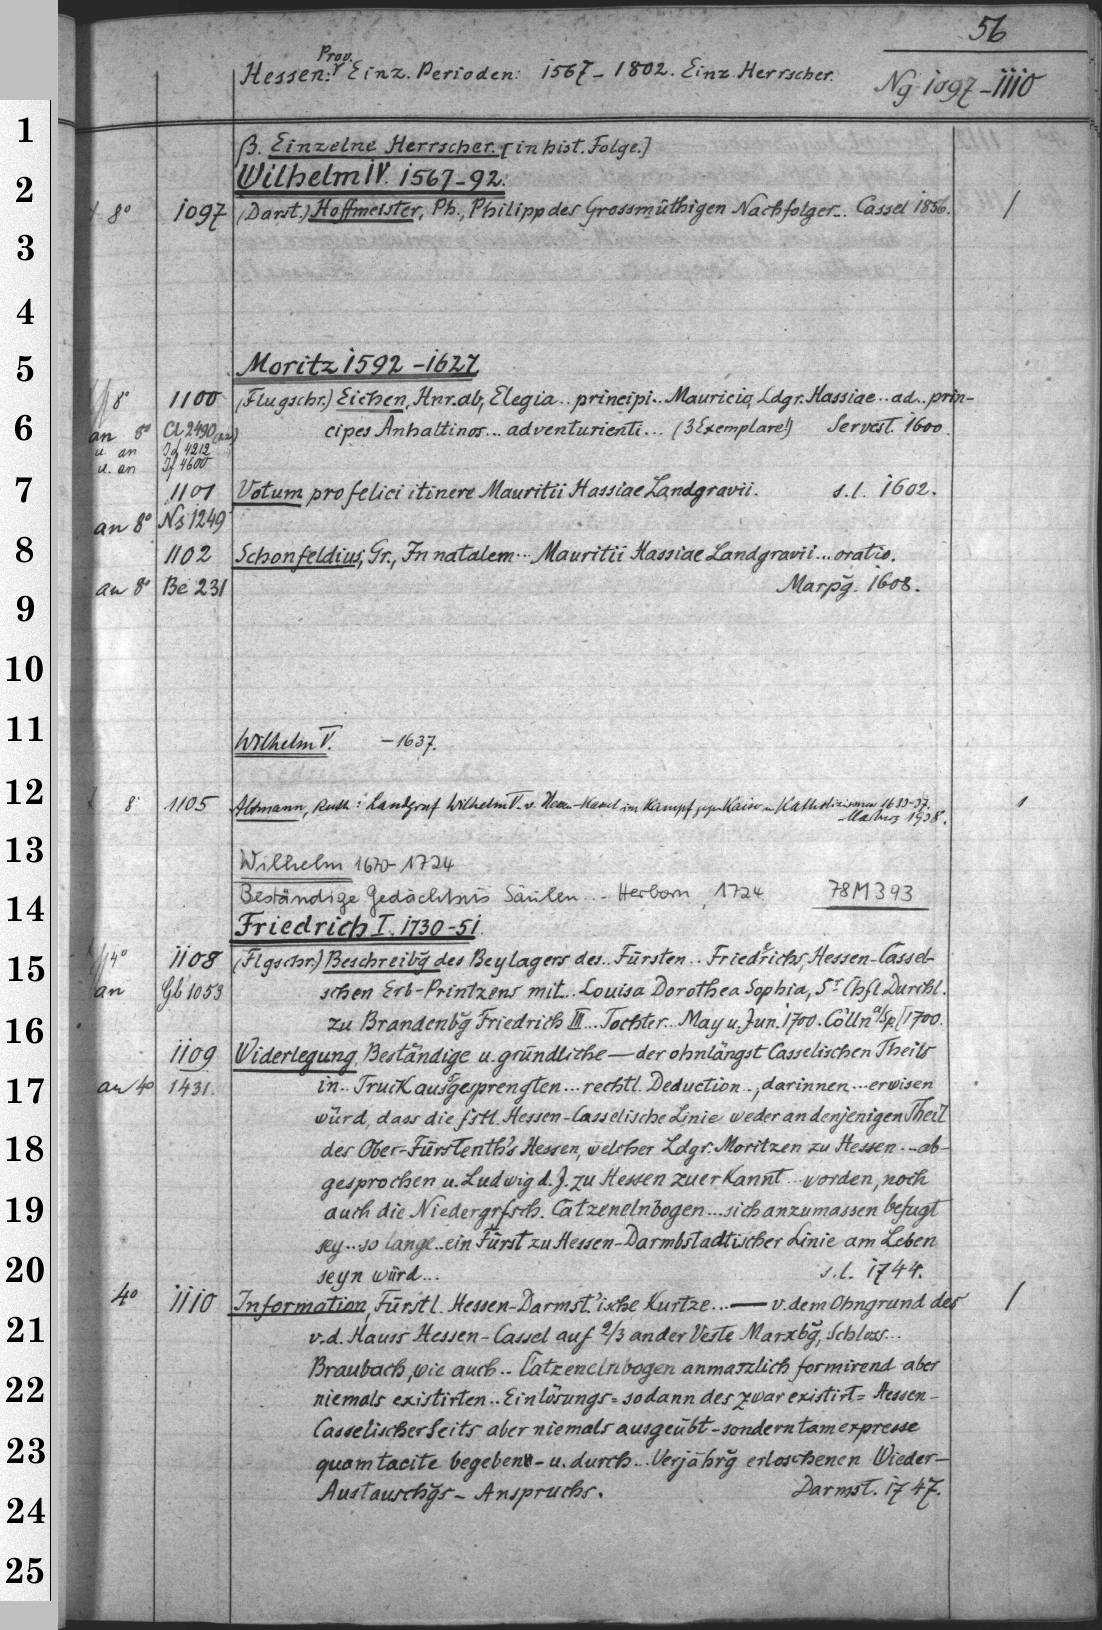 56
Hessen: Prov. Einz. Perioden: 1567-1802. Einz. Herrscher. Ng 1097-1110
β. Einzelne Herrscher. [in hist. Folge.]
Wilhelm IV. 1567-92.
8° 1097 (Darst.) Hoffmeister, Ph., Philipp des Grossmüthigen Nachfolger... Cassel 1856. /
Moritz 1592-1627
8° 1100 (Flugschr.) Eichen, Hnr. ab, Elegia .. principi .. Mauricio, Ldgr. Hassiae .. ad .. prin-
an 8° Cl 2490 cipes Anhaltinos ... adventurienti ... (3 Exemplare!) Servest. 1600.
u. an 4212
u. an 4600
1101 Votum pro felici itinere Mauritii Hassiae Landgravii. s.l. 1602.
an 8° Ns 1249
1102 Schonfeldius, Gr., In natalem ... Mauritii Hassiae Landgravii ... oratio.
an 8° Be 231 Marpg̅. 1608.
Wilhelm V. -1637.
8° 1105 Altmann, Ruth: Landgraf Wilhelm V. v. Hessen-Kassel im Kampf gegen Kaiser u. Katholizismus 1633-37.
Marburg 1938.
Wilhelm 1670-1724
Beständige Gedächtnis Säulen ... Herborn, 1724 78 M 393
Friedrich I. 1730-51.
4° 1108 (Flgschr.) Beschreibg̅ des Beylagers des .. Fürsten .. Friedrichs, Hessen-Cassel-
an Gb 1053 schen Erb-Printzens mit .. Louisa Dorothea Sophia, Sr Chfl Durchl.
zu Brandenbg̅ Friedrich III ... Tochter .. May u. Jun. 1700. Cölln a/Sp. 1700.
1109 Widerlegung, Beständige u. gründliche — der ohnlängst Casselischen Theils
an 4° 1431. in .. Truck ausgesprengten ... rechtl. Deduction .., darinnen ... erwisen
würd, dass die fstl. Hessen-Casselische Linie weder an denjenigen Theil
des Ober-Fürstenth's Hessen, welcher Ldgr. Moritzen zu Hessen ... ab-
gesprochen u. Ludwig d. J. zu Hessen zuerkannt ... worden, noch
auch die Niedergrfsch. Catzenelnbogen ... sich anzumassen befugt
sey ... so lange .. ein Fürst zu Hessen-Darmbstadtischer Linie am Leben
seyn würd ... s.l. 1744.
4° 1110 Information, Fürstl. Hessen-Darmst.'ische Kurtze ... — v. dem Ohngrund des /
v. d. Hauss Hessen-Cassel auf 2/3 an der Veste Marxbg̅, Schloss ...
Braubach, wie auch .. Catzenelnbogen anmaszlich formirend aber
niemals existirten .. Einlösungs= sodann des zwar existirt= Hessen-
Casselischer Seits aber niemals ausgeübt- sondern tam expresse
quam tacite begeben- u. durch ... Verjährg̅ erloschenen Wieder-
Austauschg̅s- Anspruchs. Darmst. 1747.